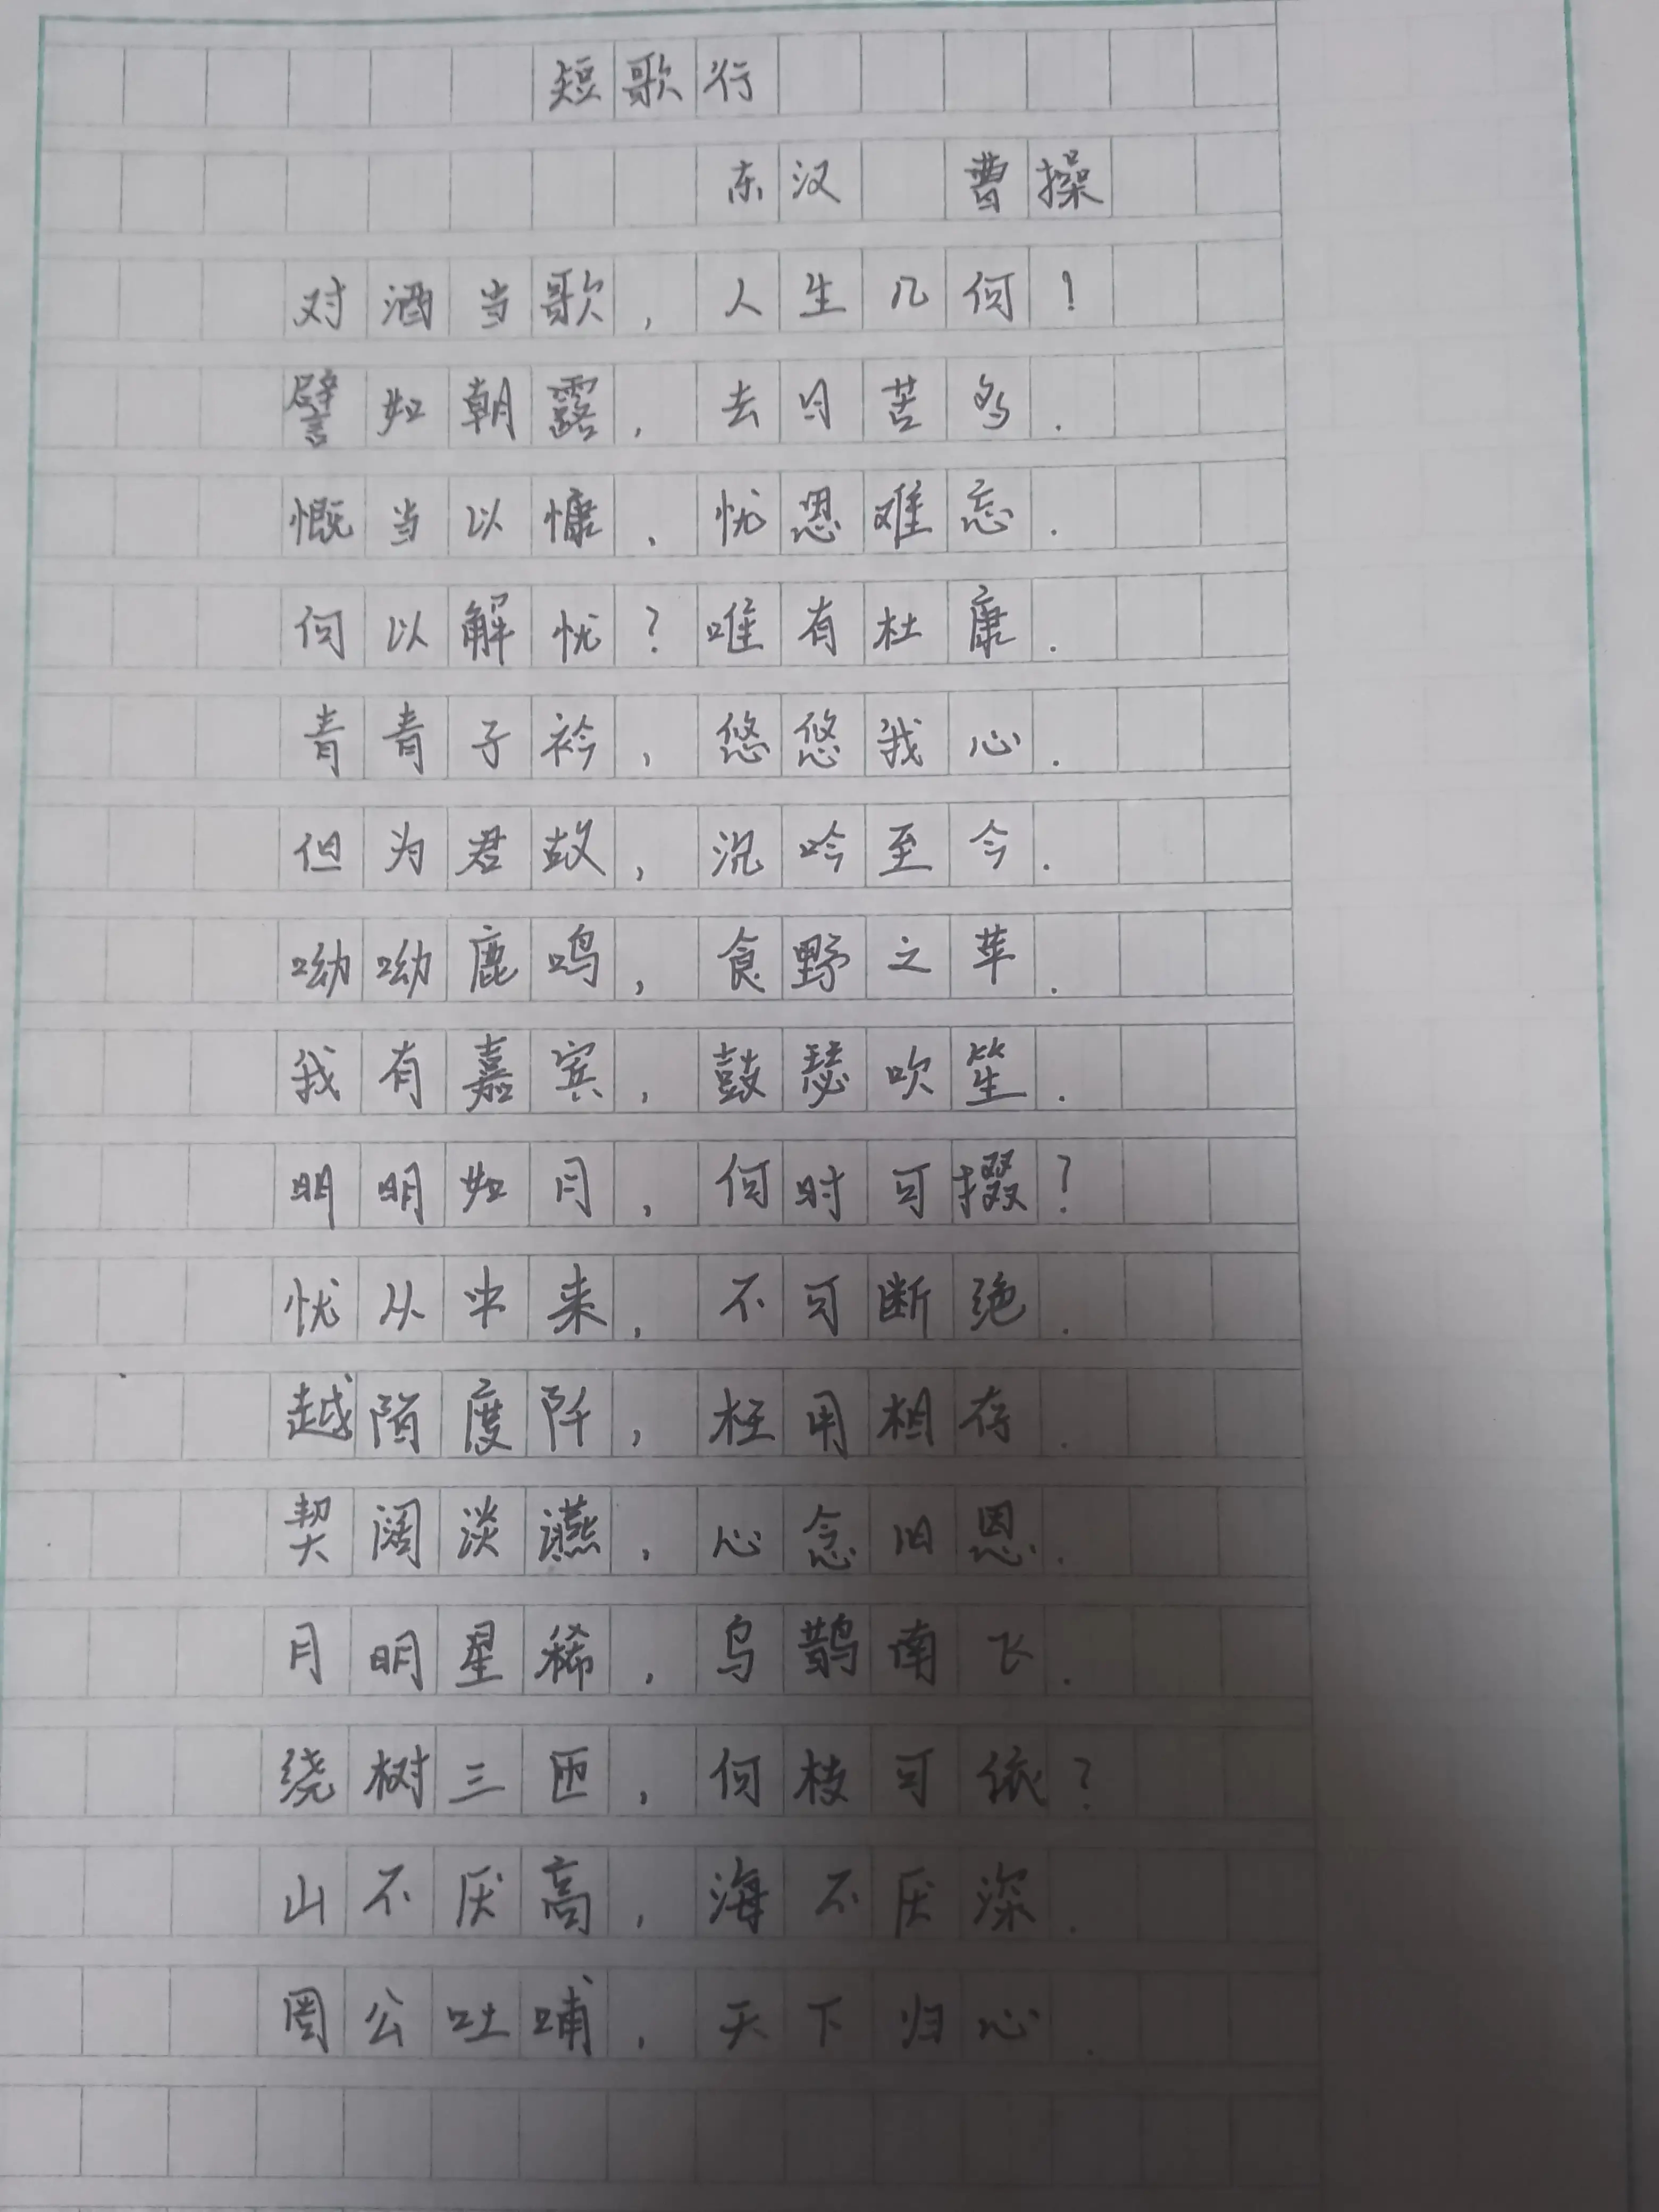 短歌行
东汉 曹操
对酒当歌，人生几何！
譬如朝露，去日苦多.
慨当以慷，忧思难忘.
何以解忧？唯有杜康.
青青子衿，悠悠我心.
但为君故，沉吟至今.
呦呦鹿鸣，食野之苹.
我有嘉宾，鼓瑟吹笙.
明明如月，何时可掇？
忧从中来，不可断绝.
越陌度阡，枉用相存.
契阔谈讌，心念旧恩.
月明星稀，乌鹊南飞.
绕树三匝，何枝可依？
山不厌高，海不厌深.
周公吐哺，天下归心.